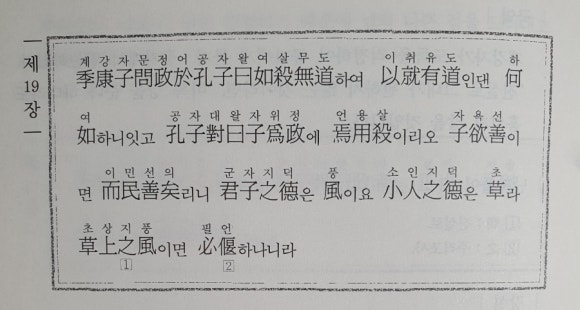 제19장
계강자문정어공자왈여살무도 이취유도 하
季康子問政於孔子曰如殺無道하여 以就有道인댄 何
여 공자대왈자위정 언용살 자욕선
如하니잇고 孔子對曰子爲政에 焉用殺이리오 子欲善이
이민선의 군자지덕 풍 소인지덕 초
면 而民善矣리니 君子之德은 風이요 小人之德은 草라
초상지풍 필언
草上之風이면 必偃하나니라
1 2